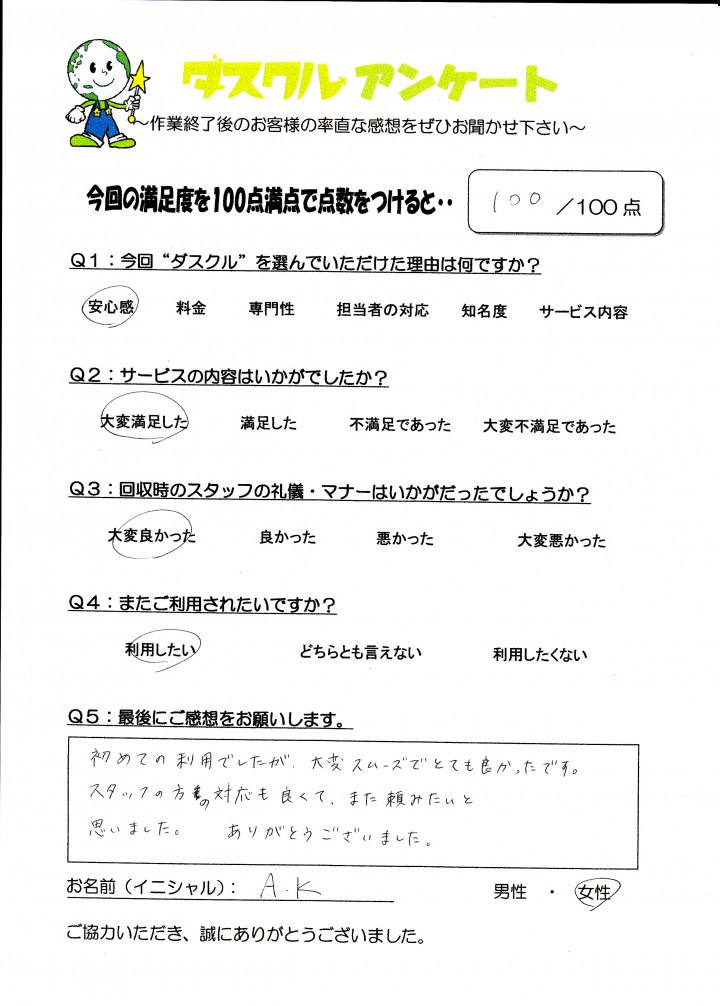 ダスクル アンケート
～作業終了後のお客様の率直な感想をぜひお聞かせ下さい～
今回の満足度を100点満点で点数をつけると・・ 100 ／100点
Q1：今回“ダスクル”を選んでいただけた理由は何ですか？
安心感 料金 専門性 担当者の対応 知名度 サービス内容
Q2：サービスの内容はいかがでしたか？
大変満足した 満足した 不満足であった 大変不満足であった
Q3：回収時のスタッフの礼儀・マナーはいかがだったでしょうか？
大変良かった 良かった 悪かった 大変悪かった
Q4：またご利用されたいですか？
利用したい どちらとも言えない 利用したくない
Q5：最後にご感想をお願いします。
初めての利用でしたが、大変スムーズでとても良かったです。
スタッフの方の対応も良くて、また頼みたいと
思いました。 ありがとうございました。
お名前（イニシャル）： A.K 男性 ・ 女性
ご協力いただき、誠にありがとうございました。